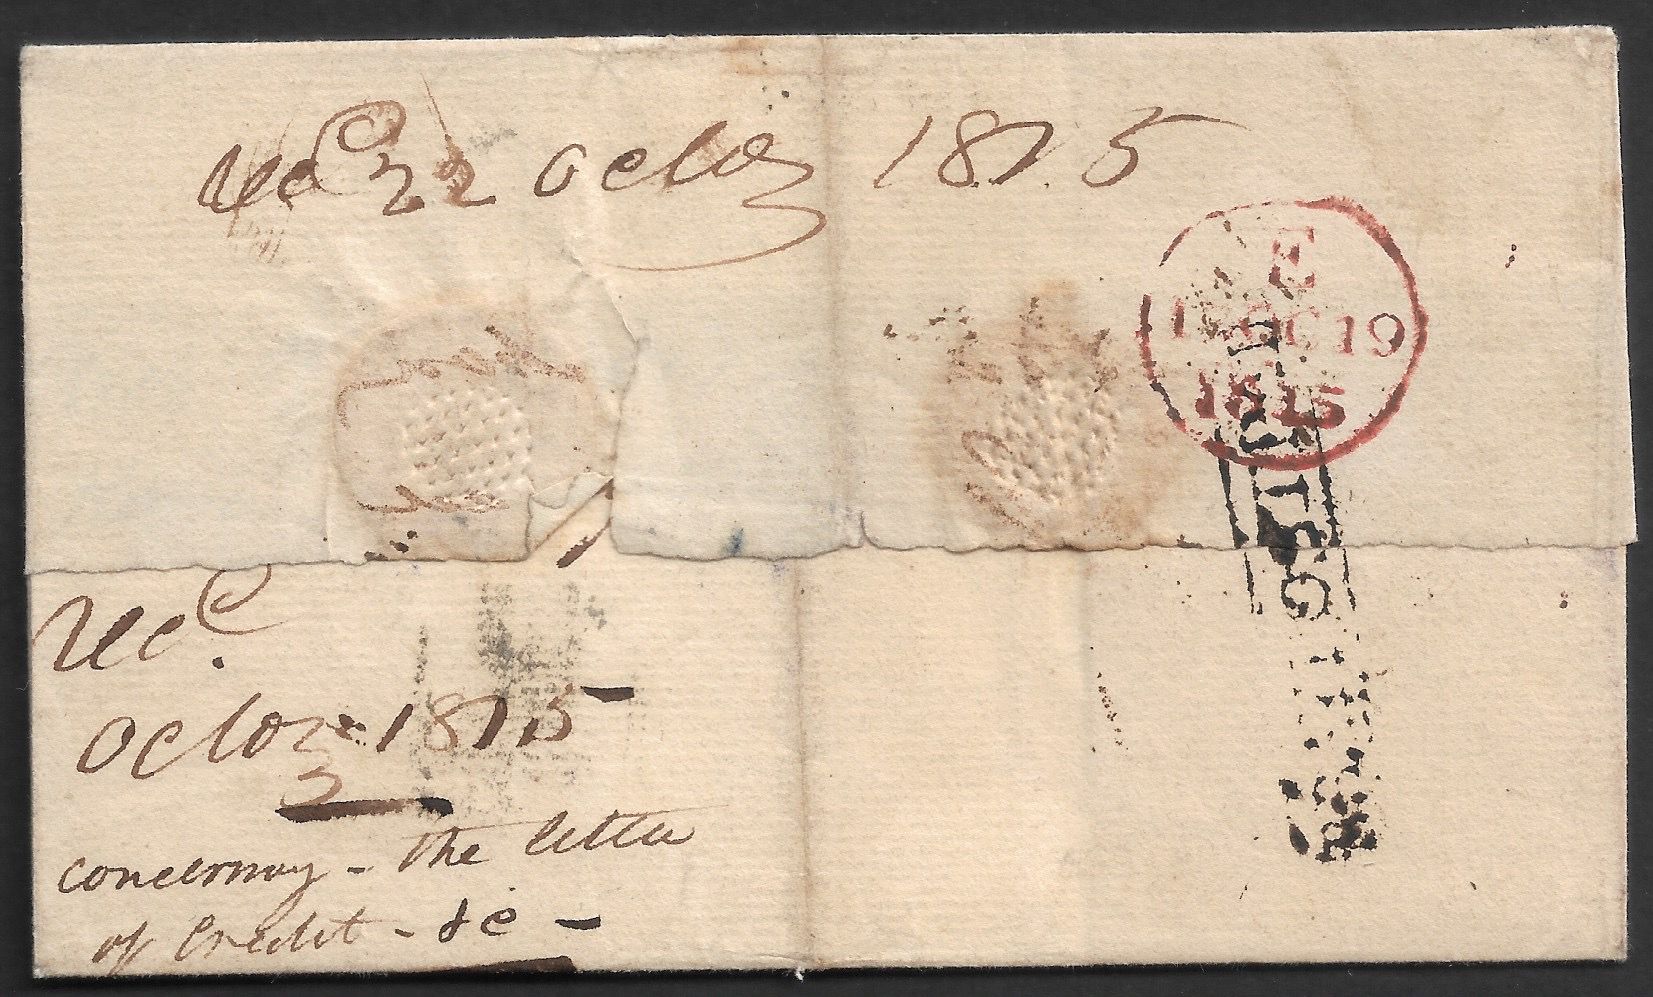 Recd 22 Octor 1815
E
OC 19
1815
Recd
Octor 1815
concerning - the letter
of Credit - &c -